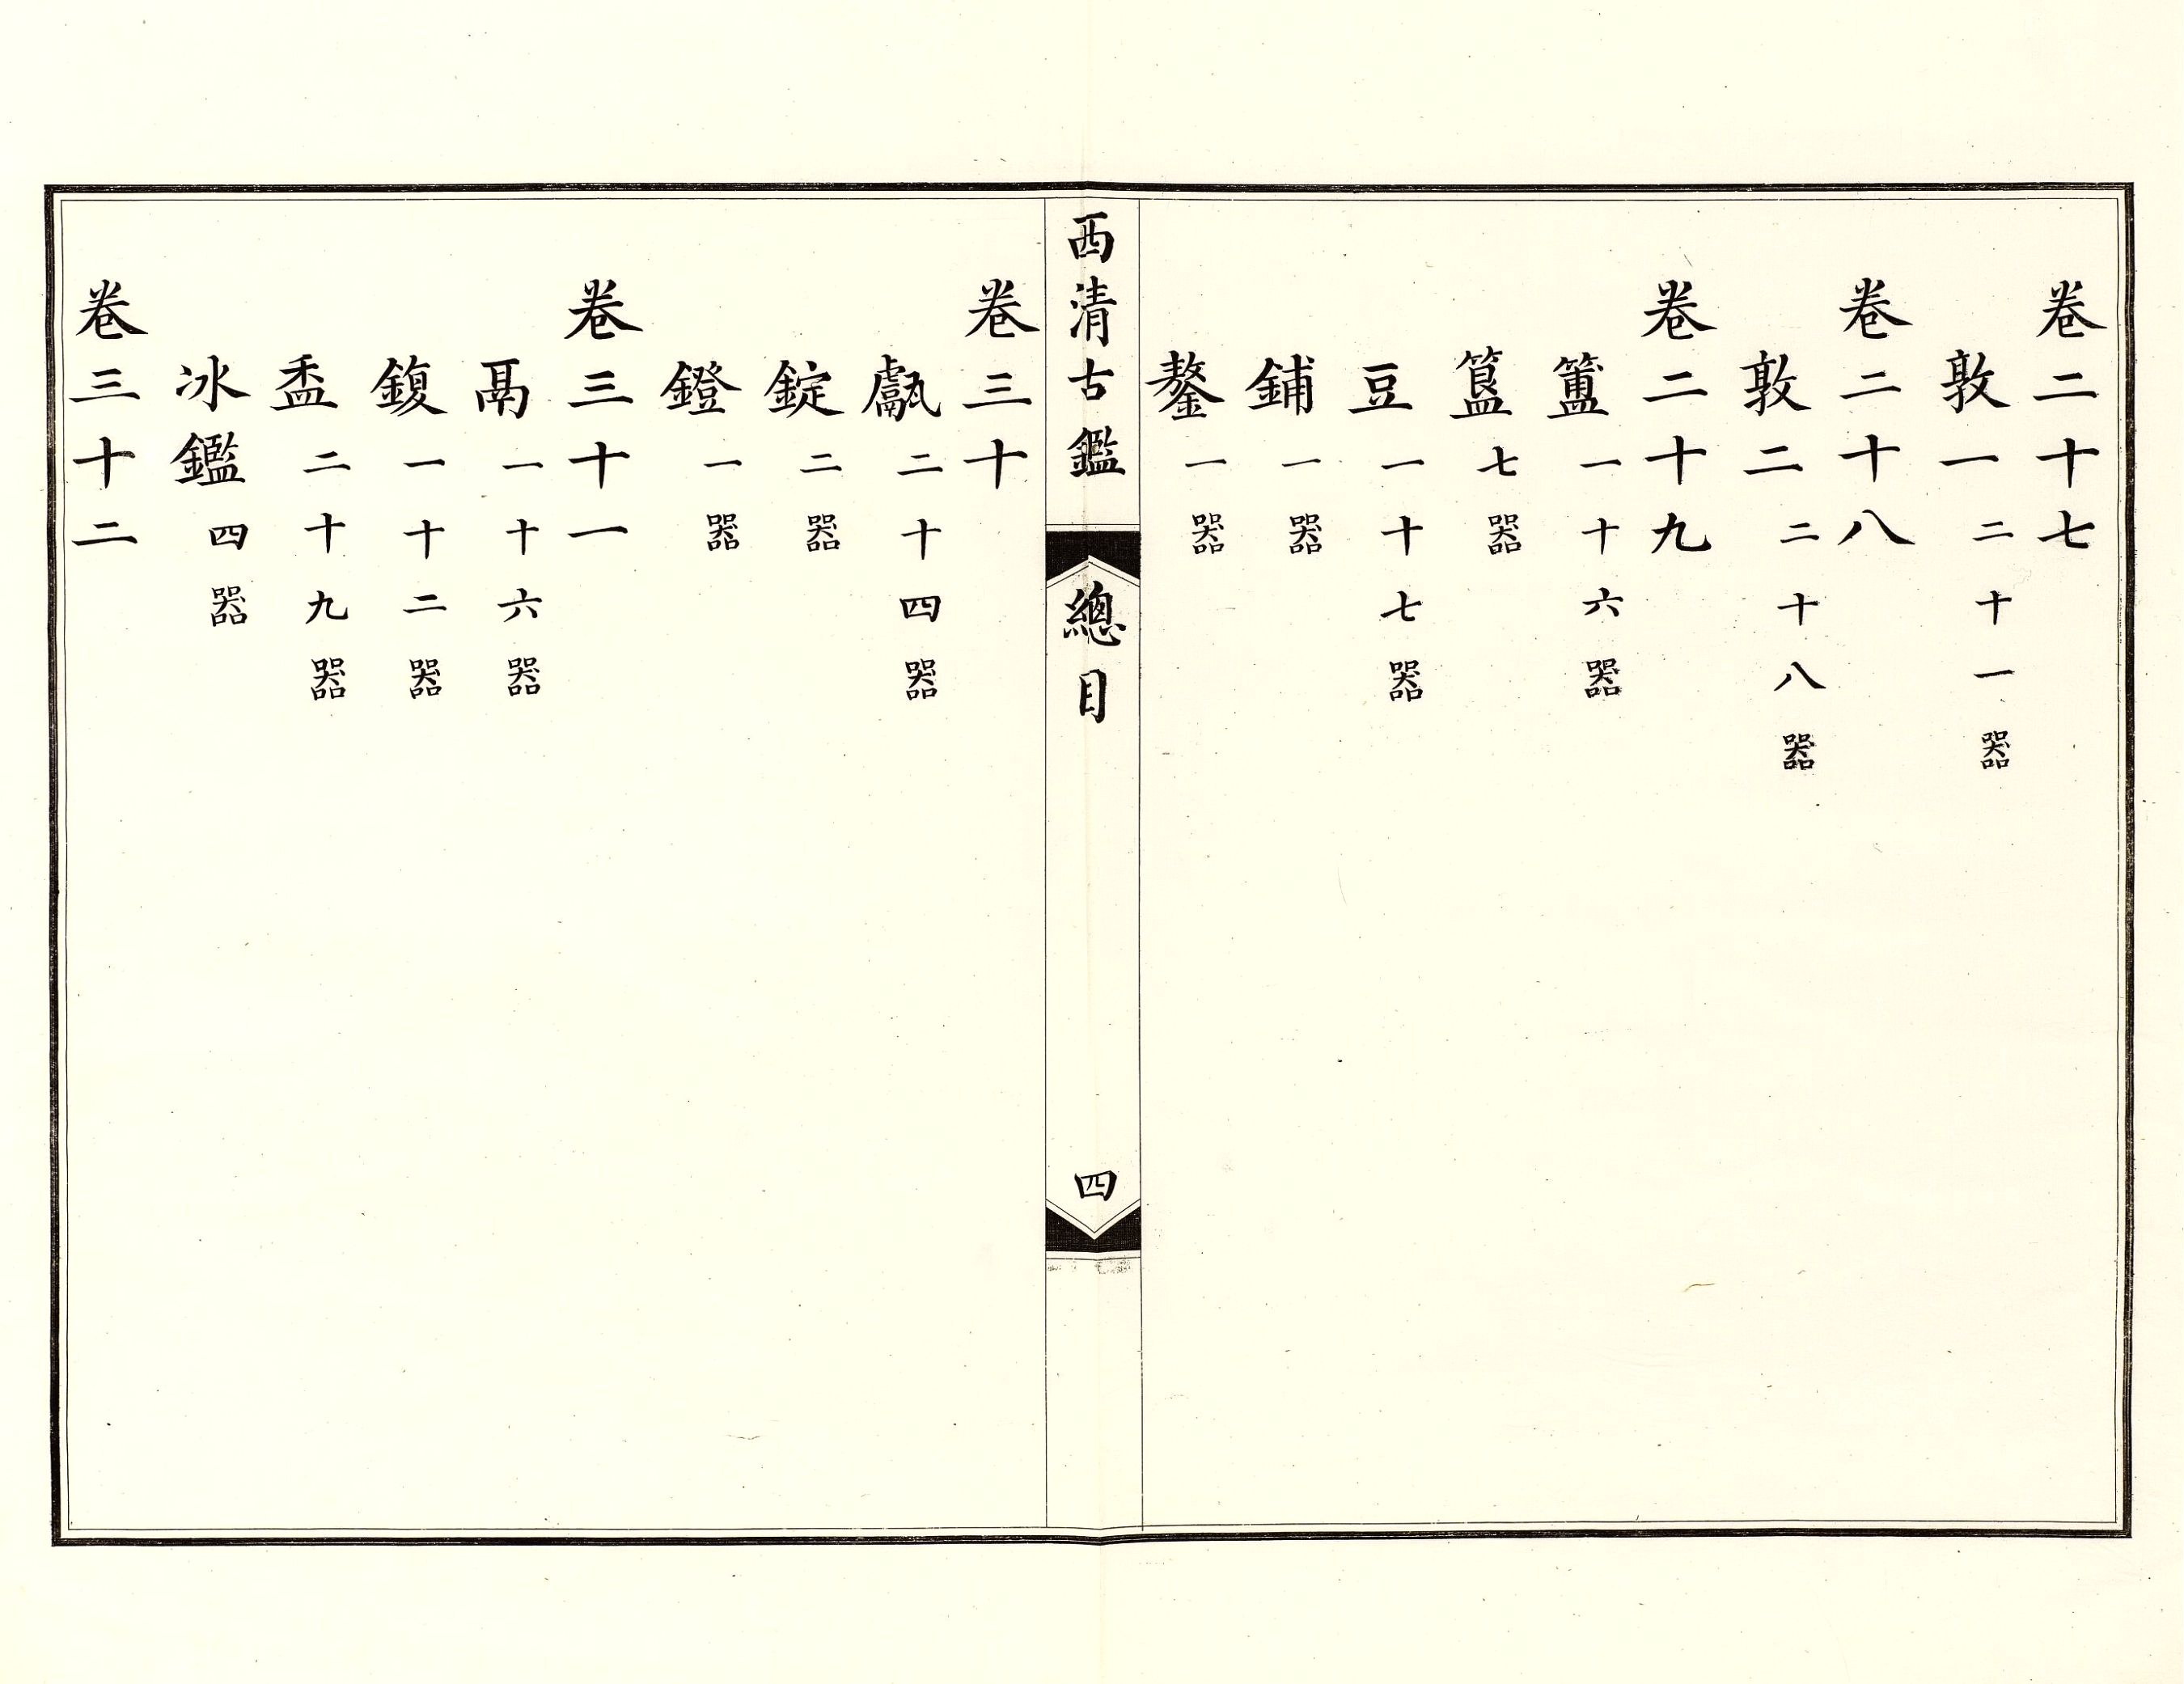 卷二十七
敦一二十一器
卷二十八
敦二二十八器
卷二十九
簠一十六器
簋七器
豆一十七器
鋪一器
鏊一器
西清古鑑 總目 四
卷三十
甗二十四器
錠二器
鐙一器
卷三十一
鬲一十六器
鍑一十二器
盉二十九器
冰鑑四器
卷三十二